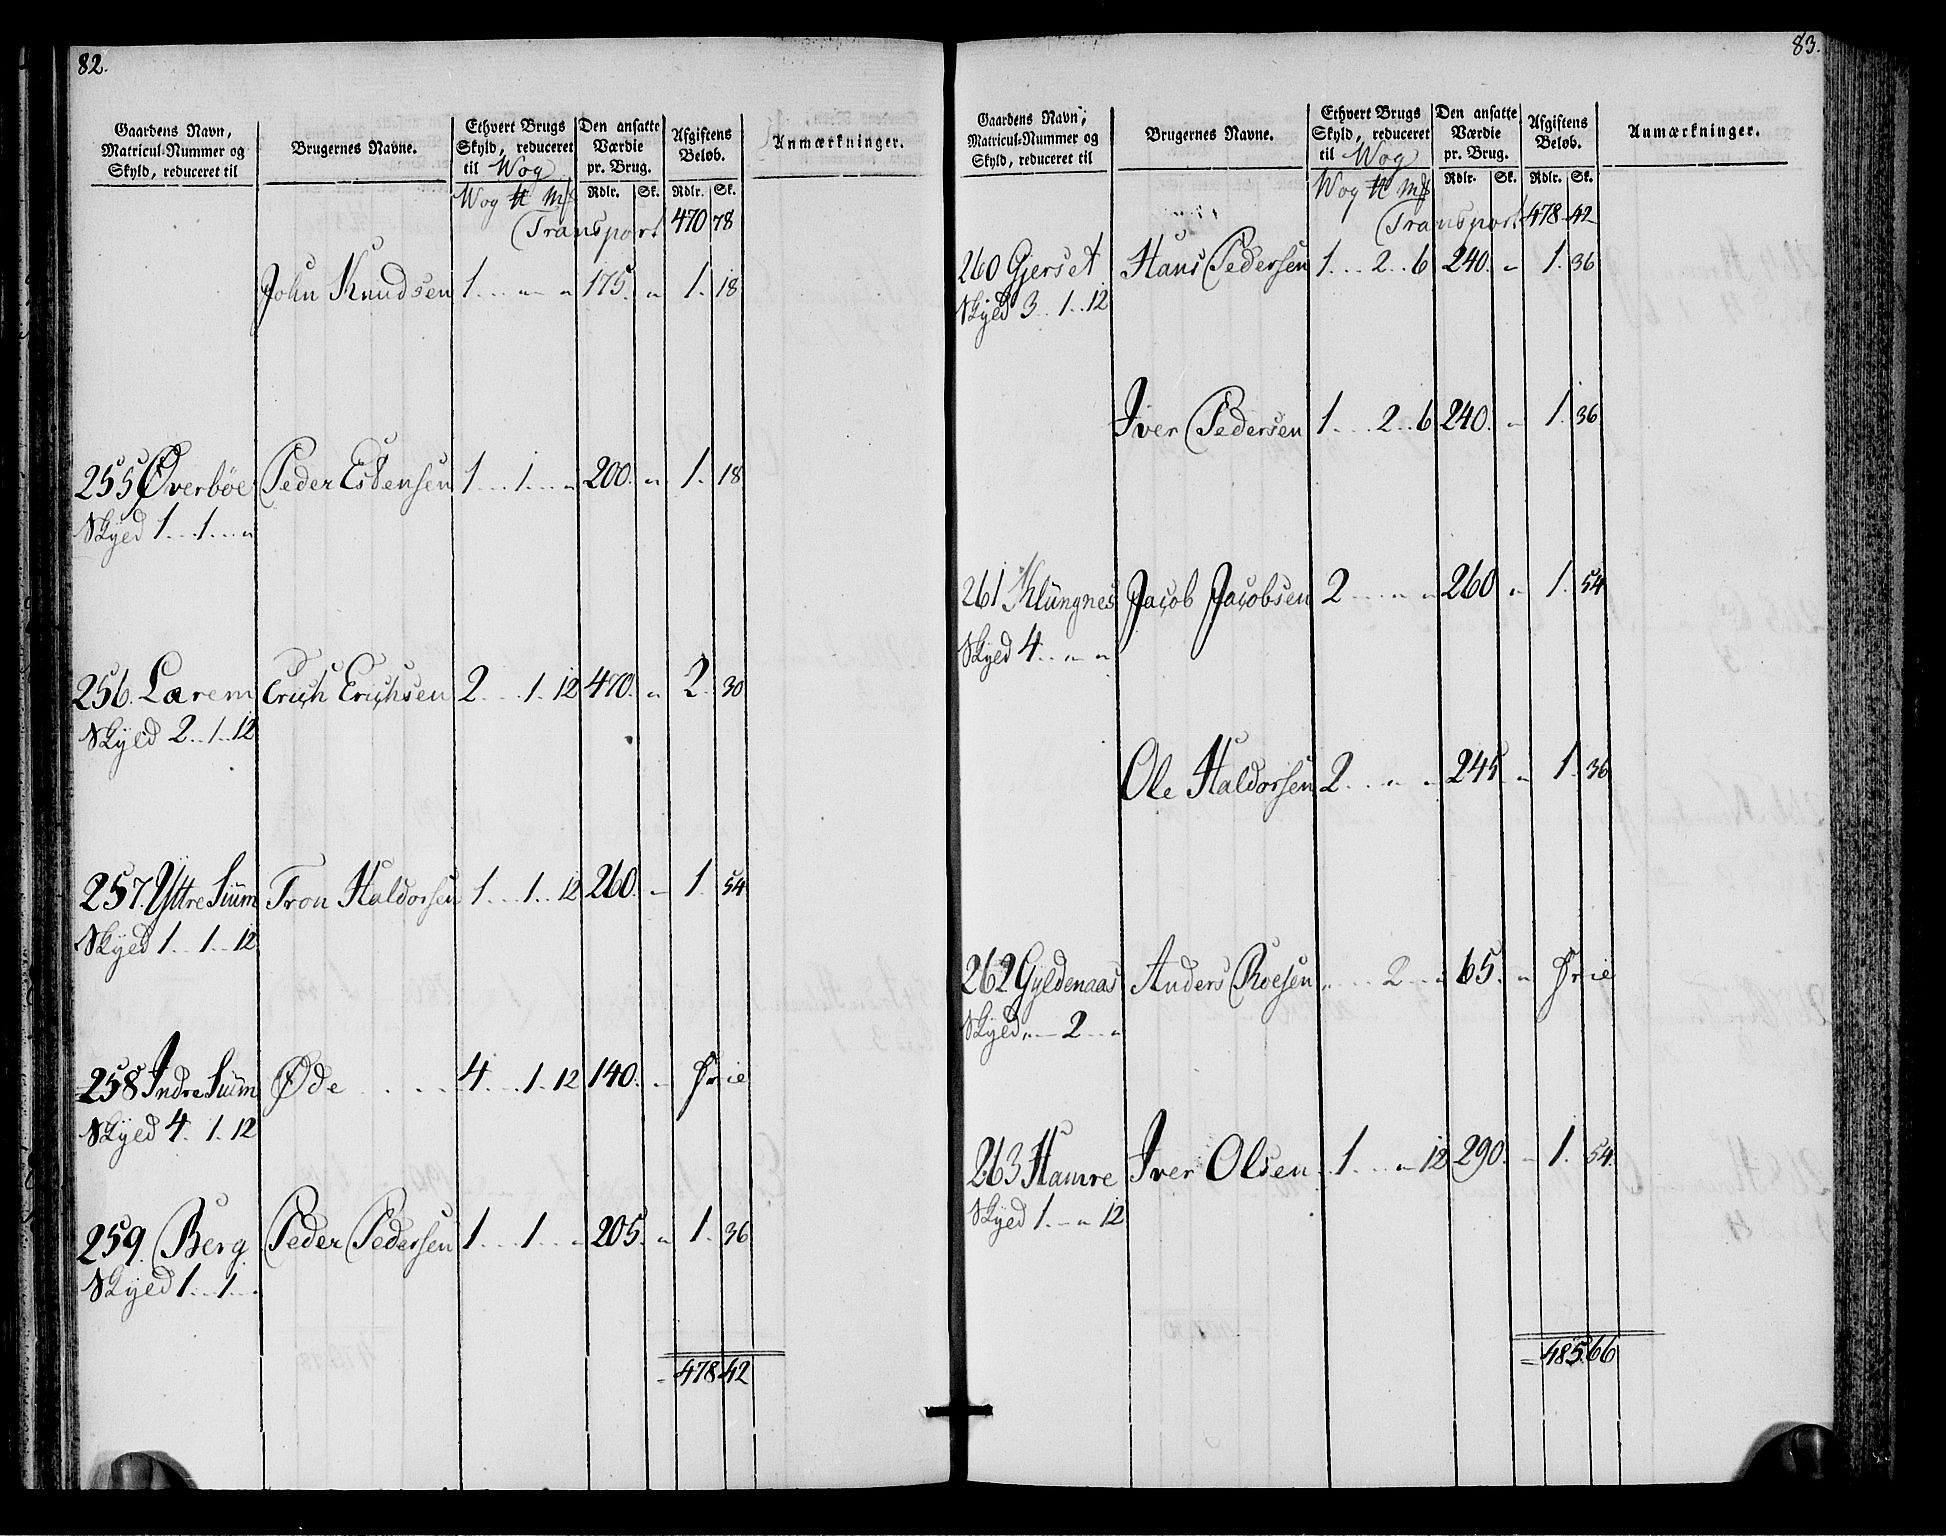 82.
Gaardens Navn, Matricul-Nummer og Skyld, reduceret til
Brugernes Navne.
Ethvert Brugs Skyld, reduceret til Wog
Den ansatte Værdie pr. Brug.
Afgiftens Beløb.
Anmærkninger.
Wog ℔ Mk Rdlr. Sk. Rdlr. Sk.
Transport 470 78
John Knudsen 1 . . . „ . . „ 175. „ 1. 18
255 Øverbøe Peder Estensen 1 . . . 1 . . . „ 200. „ 1. 18
Skyed 1 . . . 1 . . . „
256. Larem Erich Erichsen 2 . . . 1 . 12 470. „ 2. 30
Skyld 2 . . 1 . . 12
257. Yttre Siüm Tron Haldorsen 1 . . . 1 . . 12 260. „ 1. 54
Skyed 1 . . 1 . . 12
258 Indre Siüm Øde . . . . 4 . . . 1 . 12 140. „ Frie
Skyed 4. 1. 12
259. Berg Peder Pedersen 1 . . . 1 . . . „ 205. „ 1. 36
Skyed 1 . . . 1 . . .
478 42
83.
Gaardens Navn, Matricul-Nummer og Skyld, reduceret til
Brugernes Navne.
Ethvert Brugs Skyld, reduceret til Wog
Den ansatte Værdie pr. Brug.
Afgiftens Beløb.
Anmærkninger.
Wog ℔ Mk Rdlr. Sk. Rdlr. Sk.
Transport 478 42
260 Gjerset Hans Pedersen 1 . . . 2 . . 6 240. „ 1. 36
Skyed 3 . . 1 . . 12
Iver Pedersen 1 . . . 2 . . 6 240. „ 1. 36
261 Klüngnes Jacob Jacobsen 2 . . . „ . „ 260 „ 1. 54
Skyed 4 . . „ . . „
Ole Haldorsen 2 . . . „ . „ 245 „ 1. 36
262 Gyldenaas Anders Roesen „ . . . 2 . . „ 65. „ Frie
Skyed „ . . 2 . . „
263 Hamre Iver Olsen 1 . . . „ 12 290. „ 1. 54.
Skyed 1 . . „ 12
485. 66